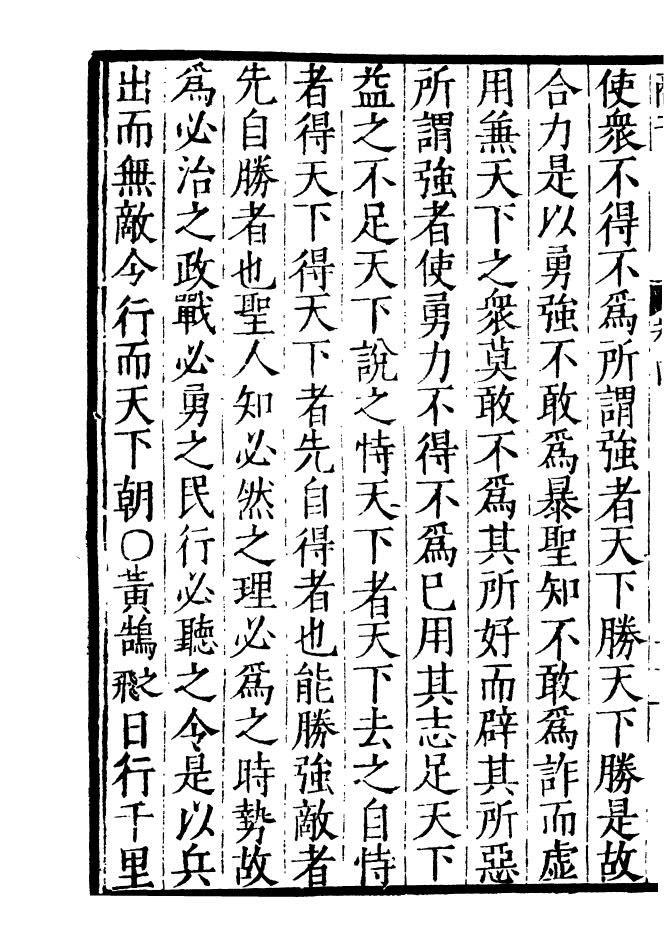 使衆不得不爲所謂強者天下勝天下勝是故
合力是以勇強不敢爲暴聖知不敢爲詐而虚
用兼天下之衆莫敢不爲其所好而辟其所惡
所謂強者使勇力不得不爲已用其志足天下
益之不足天下說之恃天下者天下去之自恃
者得天下得天下者先自得者也能勝強敵者
先自勝者也聖人知必然之理必爲之時勢故
爲必治之政戰必勇之民行必聽之令是以兵
出而無敵令行而天下朝〇黃鵠之飛日行千里